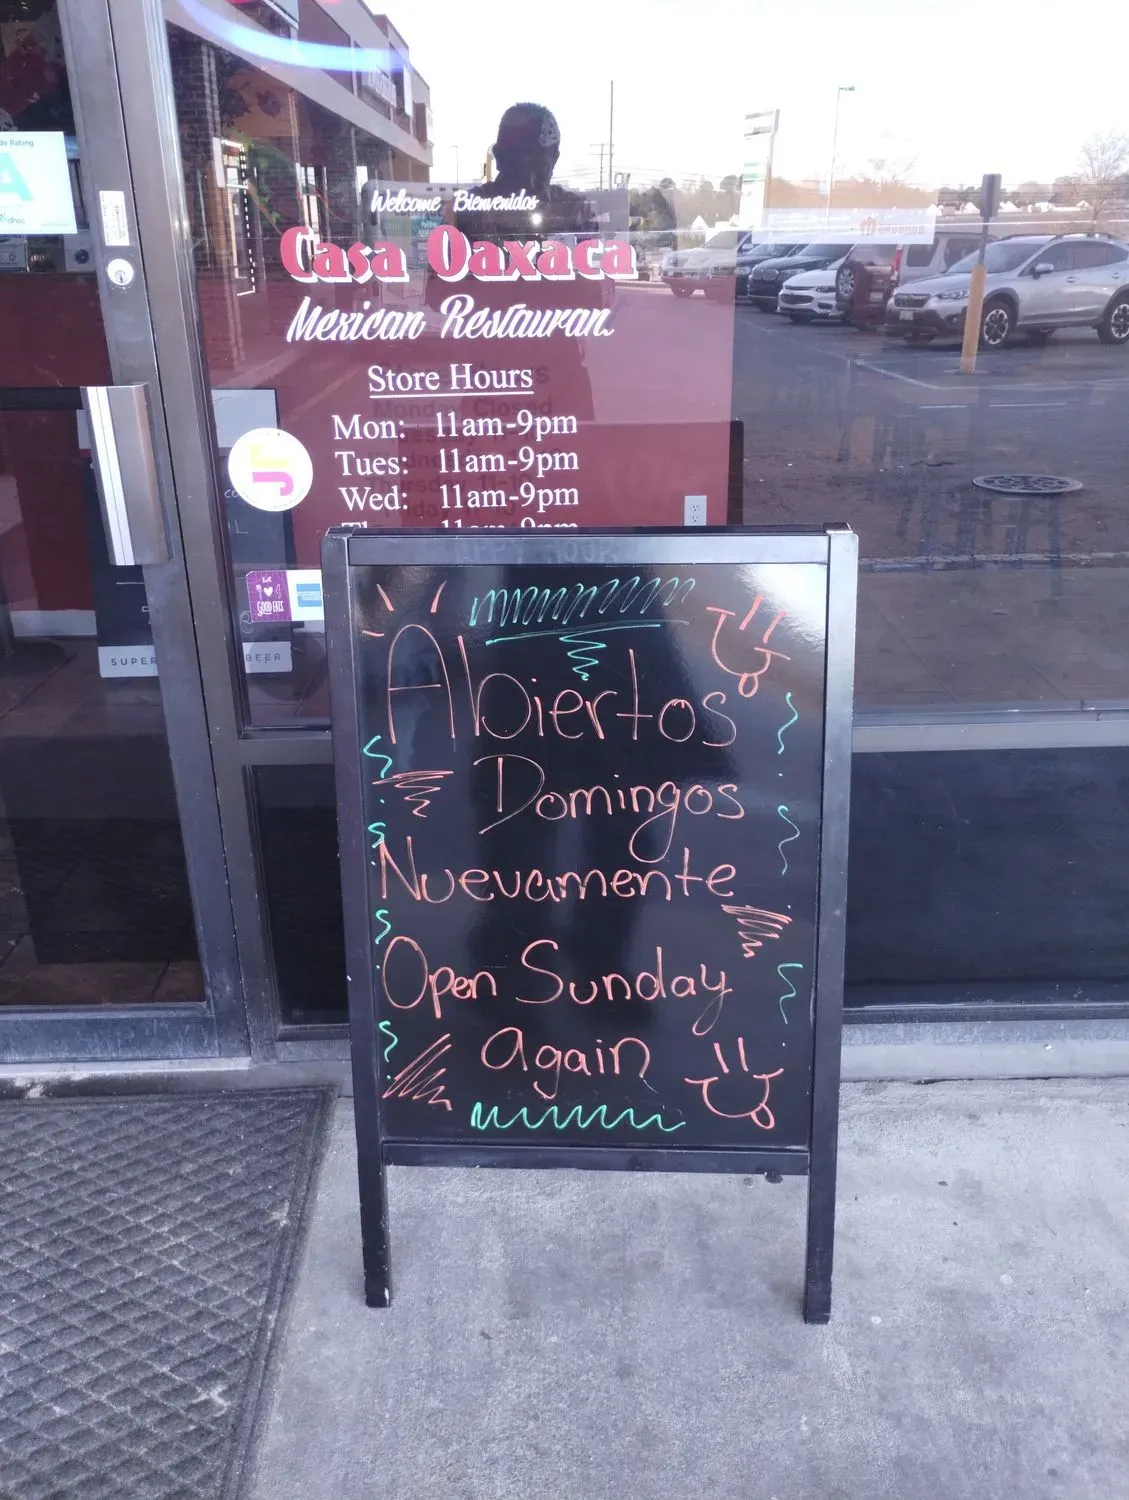 de Rating
A
dhec
Welcome Bienvenidos
Casa Oaxaca
Mexican Restauran
Store Hours
Mon: 11am-9pm
Tues: 11am-9pm
Wed: 11am-9pm
GOOD EATS
SUPER
BEER
Abiertos
Domingos
Nuevamente
Open Sunday
again